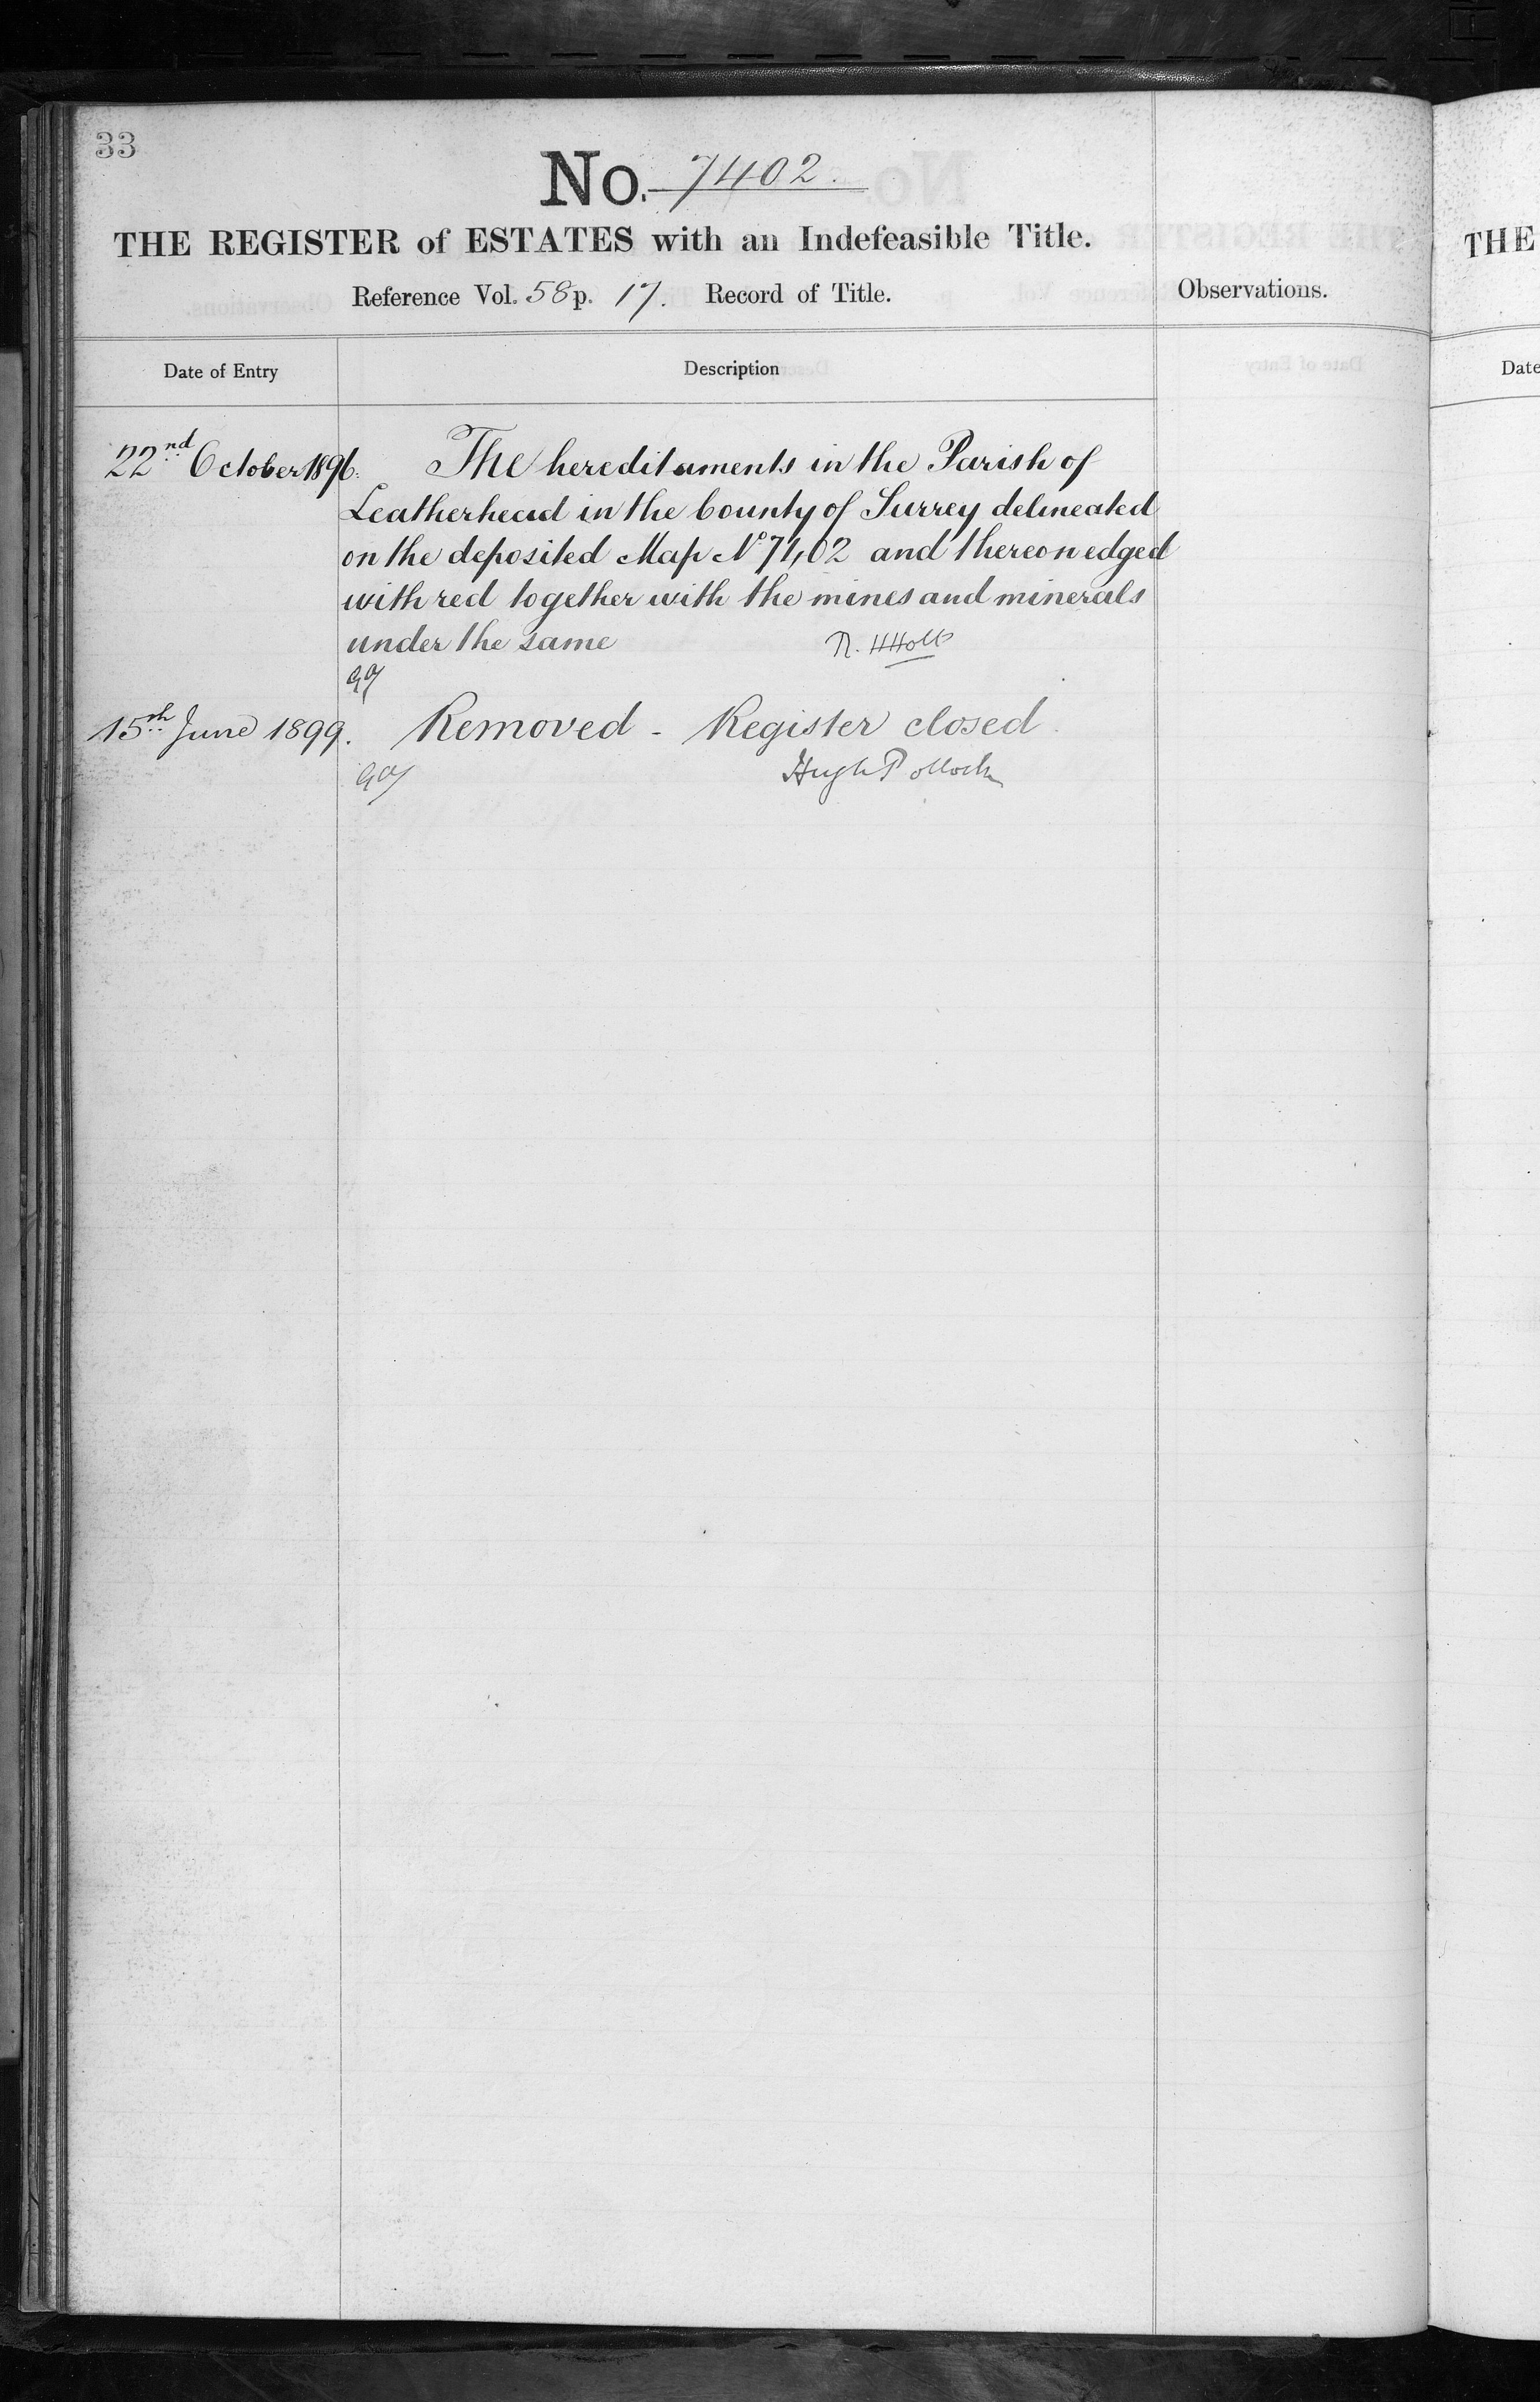 33
No. 7402.
THE REGISTER of ESTATES with an Indefeasible Title.
Reference Vol. 58 p. 17. Record of Title.
Observations.
Date of Entry
Description
22nd October 1896.
The hereditaments in the Parish of
Leatherhead in the County of Surrey delineated
on the deposited Map No 7402 and thereon edged
with red together with the mines and minerals
under the same
R. H Holt
15th June 1899.
Removed - Register closed.
Hugh Pollock
THE
Date